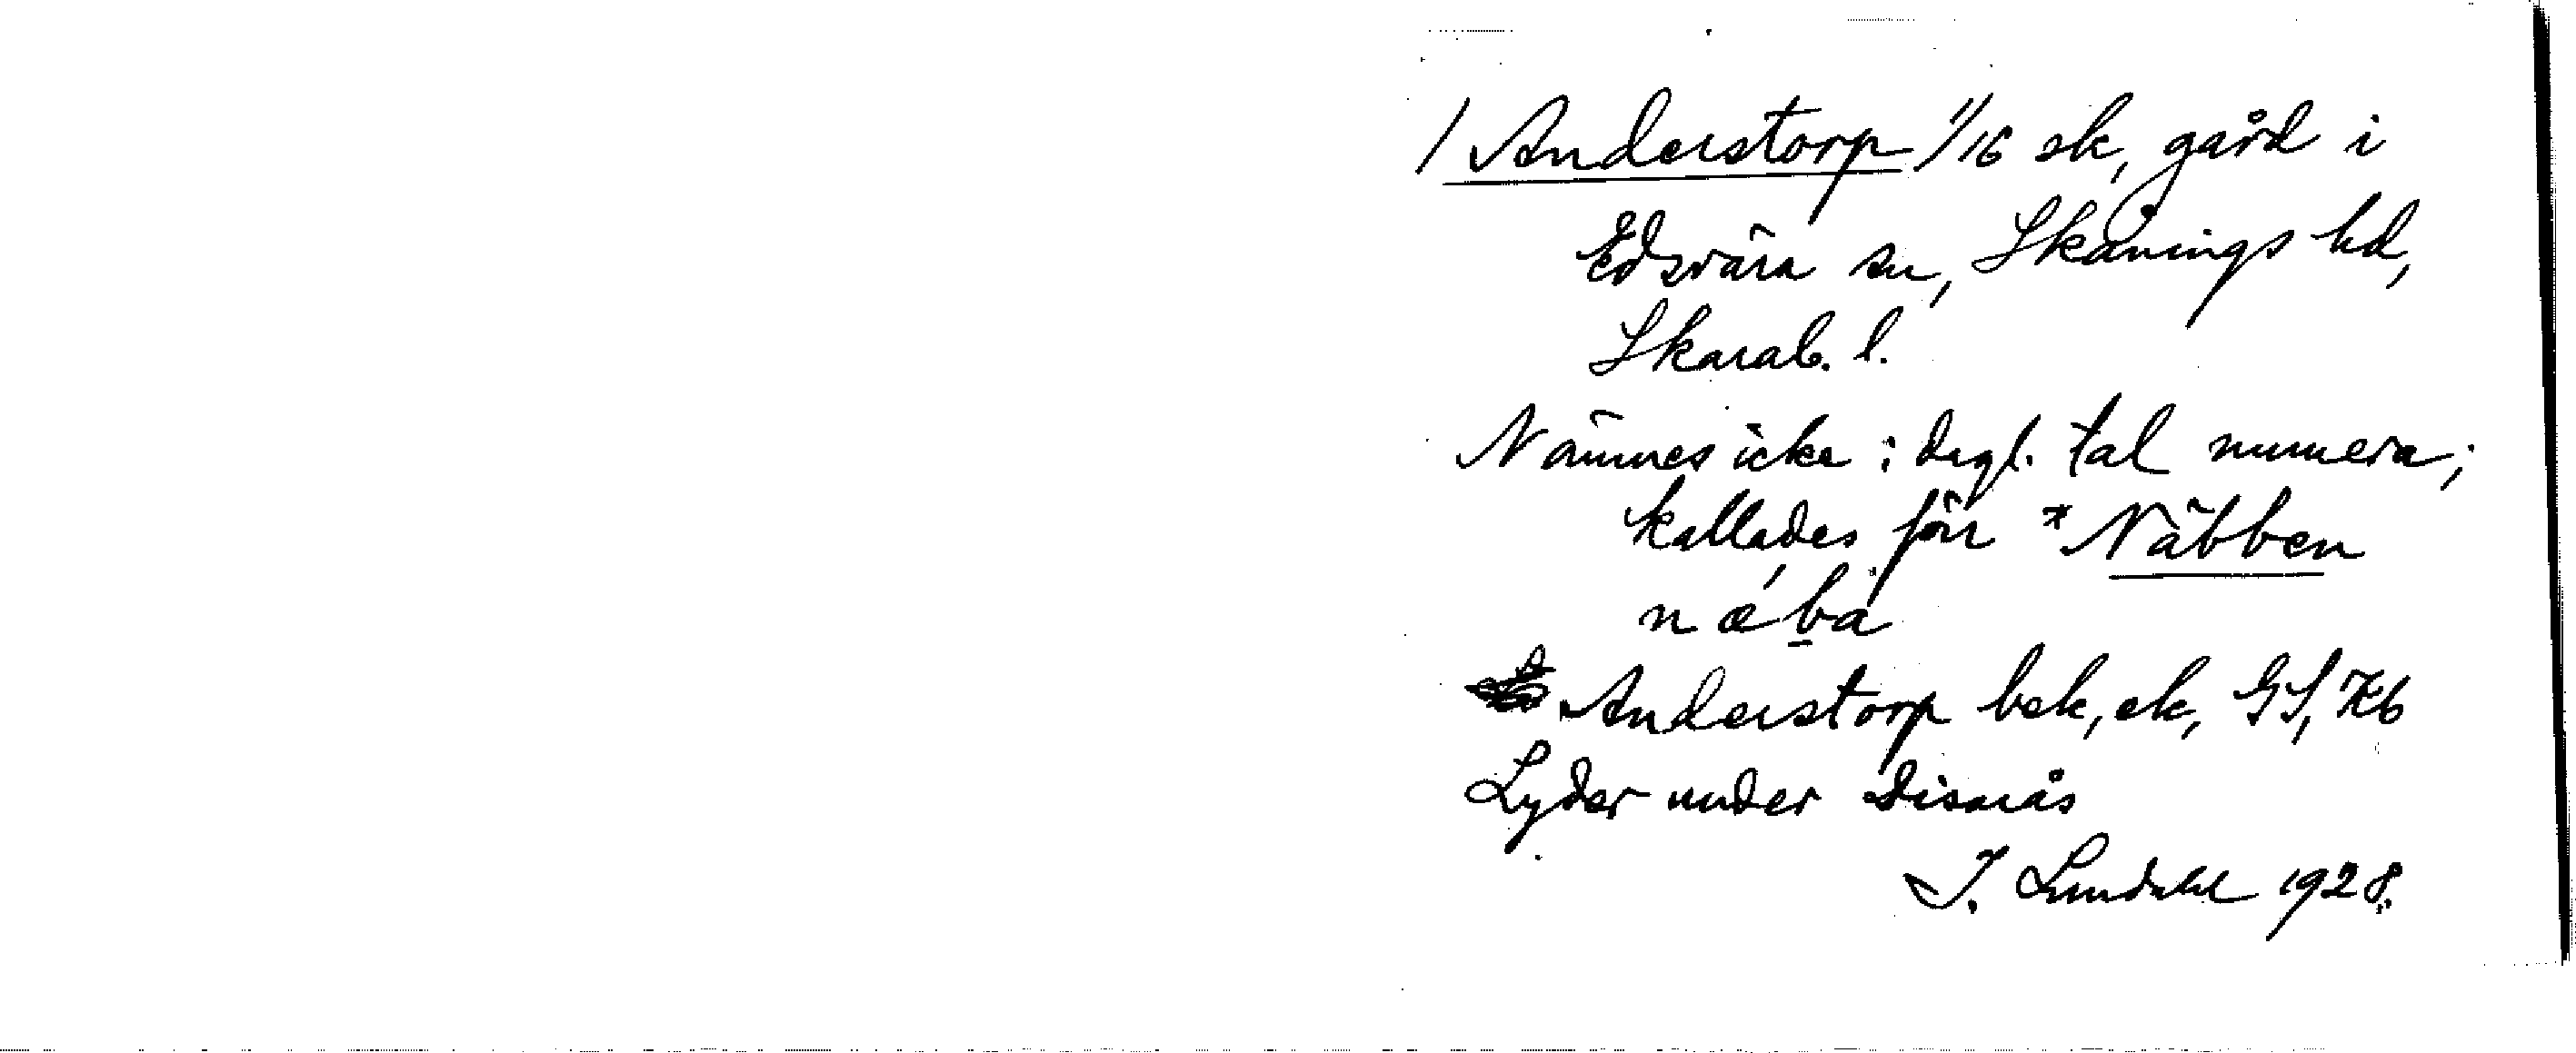 / Anderstorp 1/16 sk, gård i
Edsvära sn, Skånings hd,
Skarab. l.
Nämnes icke i dagl. tal numera;
kallades förr *Näbben
næ´ba
Anderstorp bsk, ek, GS, Kb
Lyder under
I. Lundahl 1928.